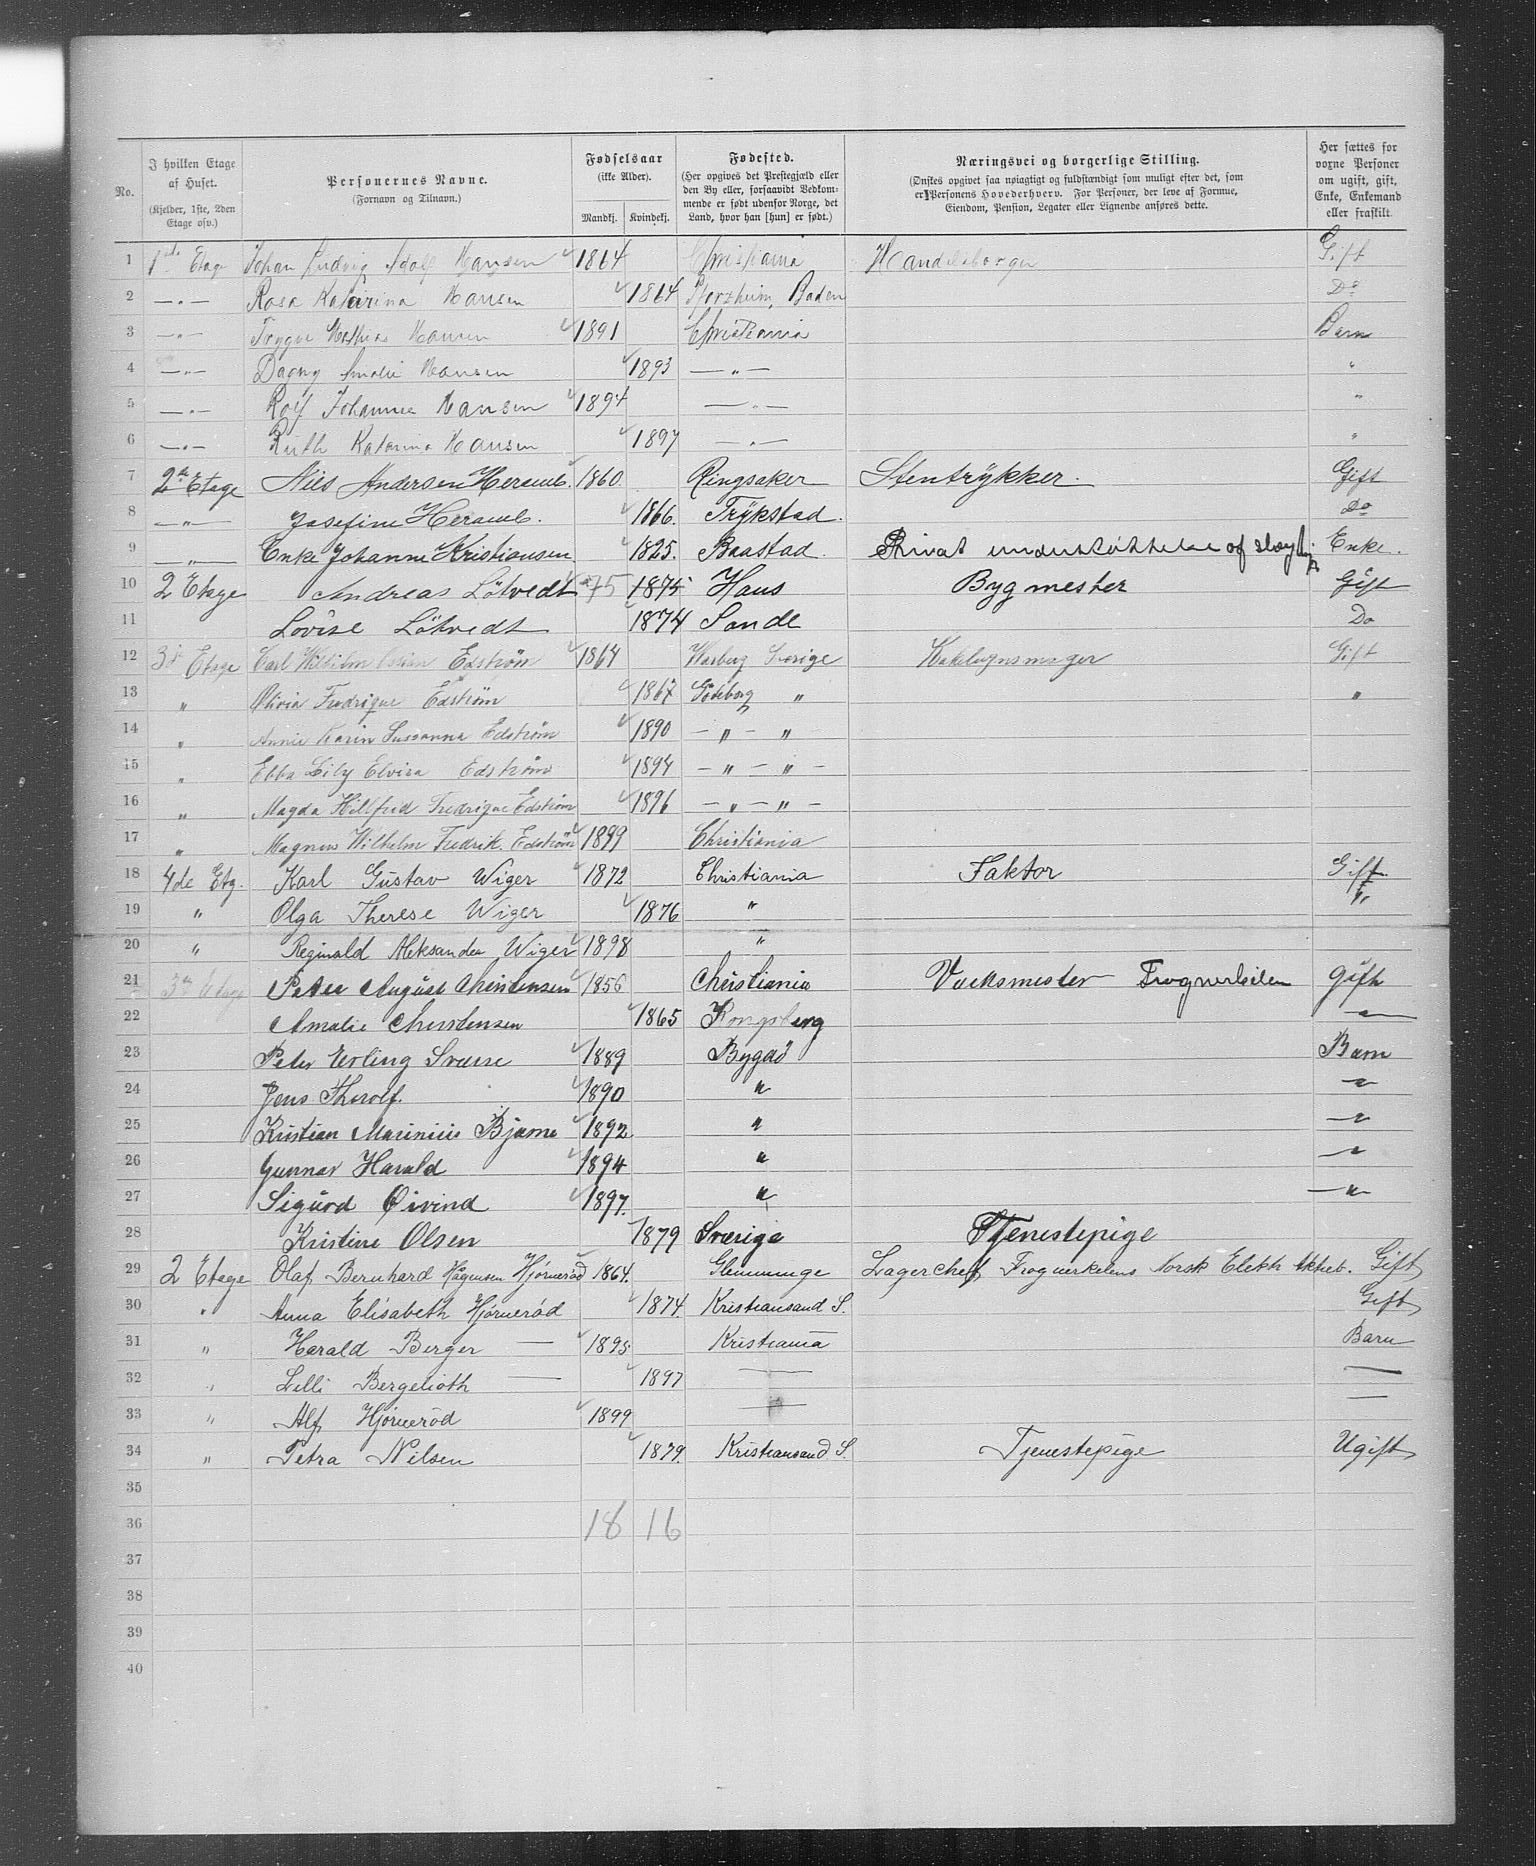 No. | I hvilken Etage af Huset. (Kjelder, 1ste, 2den Etage osv.) | Personernes Navne. (Fornavn og Tilnavn.) | Fødselsaar (ikke Alder). Mandkj. | Kvindekj. | Fødested. (Her opgives det Prestegjæld eller den By eller, forsaavidt Bedkommende er født udenfor Norge, det Land, hvor han [hun] er født.) | Næringsvei og borgerlige Stilling. (Ønskes opgivet saa nøiagtigt og fuldstændigt som muligt efter det, som er Personens Hovederhverv. For Personer, der leve af Formue, Eiendom, Pension, Legater eller Lignende anføres dette. | Her sættes for voxne Personer om ugift, gift, Enke, Enkemand eller fraskilt.
1 | 1ste Etage | Johan Ludvig Adolf Hansen | 1864 | | Christiania | Handelsborger | Gift
2 | —"— | Rosa Katarina Hansen | | 1864 | Pforzheim, Baden | | Do
3 | —"— | Trygve Mathias Hansen | 1891 | | Christiania | | Barn
4 | —"— | Dagny Amalie Hansen | | 1893 | —"— | | "
5 | —"— | Rolf Johannes Hansen | 1894 | | —"— | | "
6 | —"— | Ruth Katarina Hansen | | 1897 | —"— | | "
7 | 2den Etage | Nils Andersen Heramb. | 1860. | | Ringsaker | Stentrykker. | Gift
8 | —"— | Josefine Heramb. | | 1866. | Trykstad. | | Do
9 | —"— | Enke Johanne Kristiansen | | 1825. | Baastad. | Privat understøttelse af | Enke.
10 | 2 Etage | Andreas Lötvedt | 75 | 1875 | Haus | Bygmester | Gift
11 | | Lovise Lötvedt | | 1874 | Sande | | Do
12 | 3de Etage | Carl Wilhelm Edström | 1864 | | Warberg Sverige | Kakelugnsmager | Gift
13 | " | Olivia Fredrique Edström | | 1867 | Göteborg " | | "
14 | " | Annie Karin Sussanna Edström | | 1890 | — " — "
15 | " | Ebba Lily Elvira Edström | | 1894 | — " — " —
16 | " | Magda Hillfred Fredrique Edström | | 1896 | — " — " —
17 | " | Magnus Wilhelm Fredrik. Edström | 1899 | | Christiania
18 | 4de Etg. | Karl Gustav Wiger | 1872 | | Christiania | Faktor | Gift
19 | " | Olga Therese Wiger | | 1876 | " | | "
20 | " | Reginald Aleksander Wiger | 1898 | | "
21 | 3de Etage | Peter August Christensen | 1856 | | Christiania | Værksmester Frognerkilen | Gift
22 | | Amalie Christensen | | 1865 | Kongsberg | | —"—
23 | | Peter Erling Sverre | 1889 | | Bygdö | | Barn
24 | | Jens Thorolf. | 1890 | | " | | —"
25 | | Kristian Marinius Bjarne | 1892 | | " | | —"
26 | | Gunnar Harald | 1894 | | " | | —"
27 | | Sigurd Öivind | 1897. | | " | | —"
28 | | Kristine Olsen | | 1879 | Sverige | Tjenestepige
29 | 2 Etage | Olaf Bernhard Hagensen Hjørnerød | 1864. | | Glemminge | Lagerchef Frognerkilens Norsk Elektr Aktieb. | Gift
30 | " | Anna Elisabeth Hjørnerød | | 1874. | Kristiansand S. | | Gift
31 | " | Harald Berger — | 1895. | | Kristiania | | Barn
32 | " | Lilli Bergelioth — | | 1897 | — | | —
33 | " | Alf Hjørnerød | 1899 | | — | | —
34 | " | Petra Nilsen | | 1879. | Kristiansand S. | Tjenestepige | Ugift
35
36 | | | 18 | 16
37
38
39
40